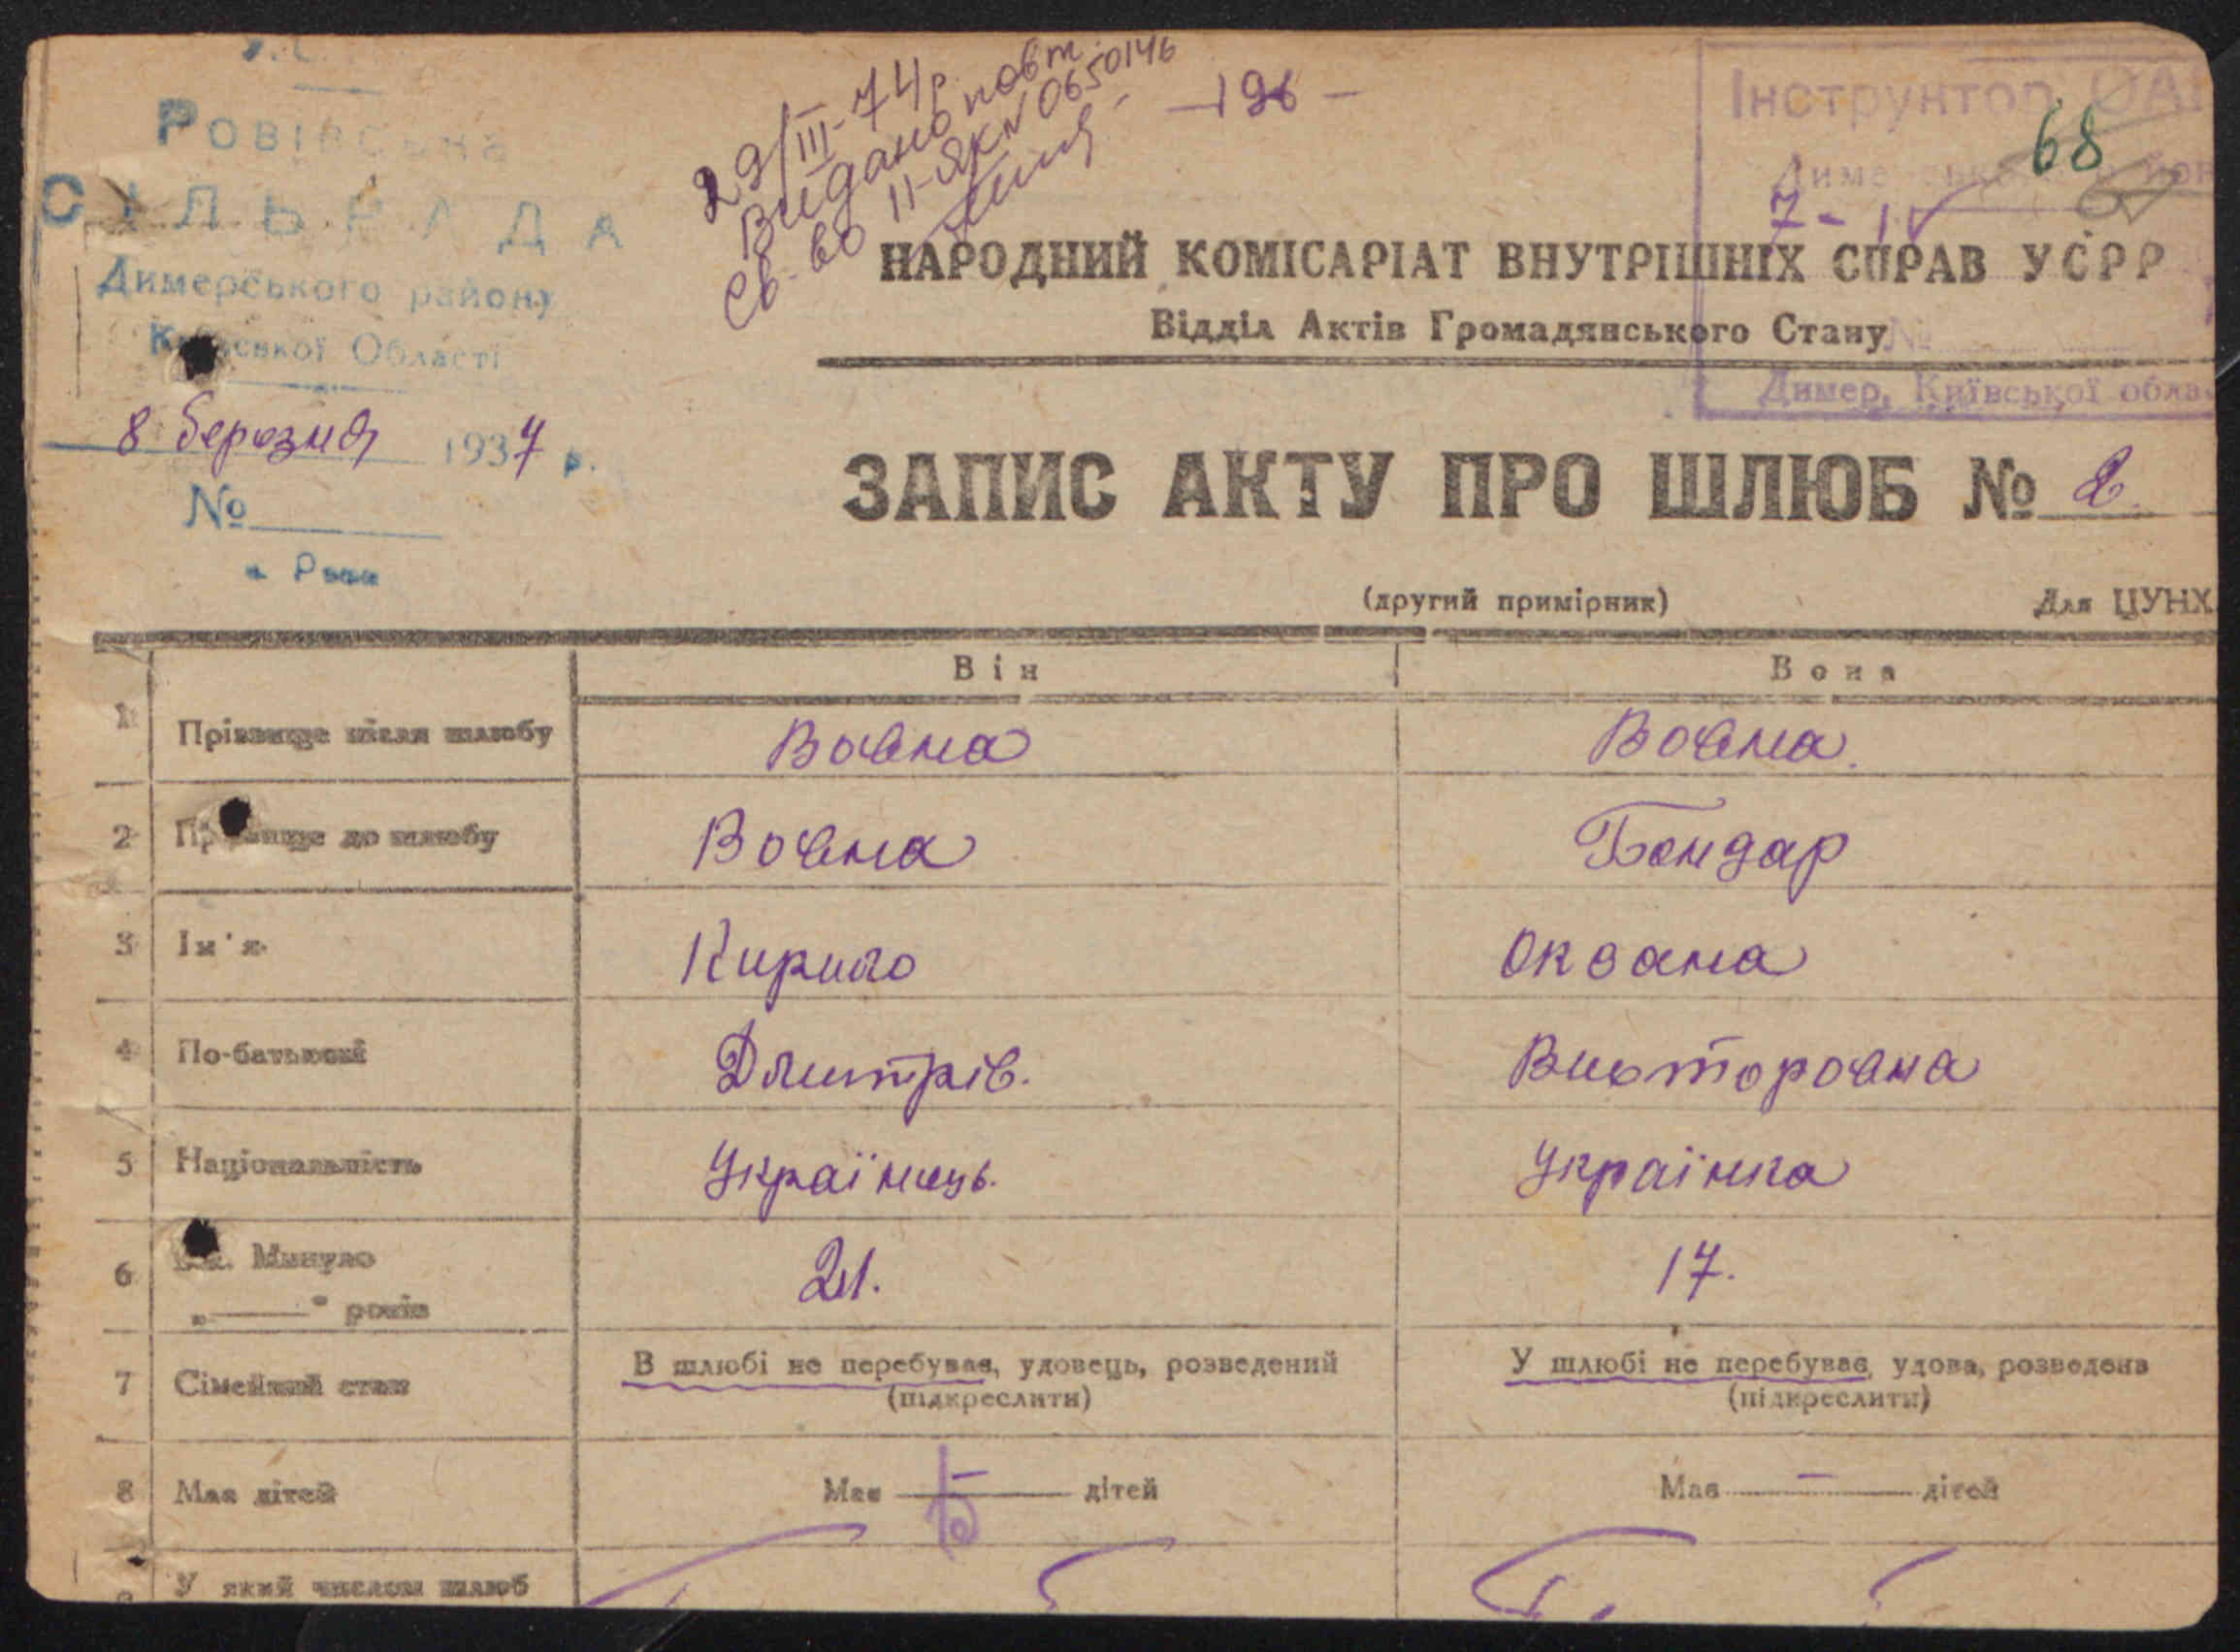 Ровівська
СІЛЬРАДА
Димерського району
Київської Області
8 березня 1937 р.
№
29/III-74 р.
Видано повт.
св-во II-ЯК № 0650146
-196-
Інструктор
68
7 - IV
Димер, Київської обла
НАРОДНИЙ КОМІСАРІАТ ВНУТРІШНІХ СПРАВ УСРР
Відділ Актів Громадянського Стану
ЗАПИС АКТУ ПРО ШЛЮБ № 2.
(другий примірник) Для ЦУНХ
Він Вона
1 Прізвище після шлюбу Вовна Вовна.
2 Прізвище до шлюбу Вовна Бондар
3 Ім'я Кирило Оксана
4 По-батькові Дмитрів. Викторовна
5 Національність Українець. Українка
6 Минуло 21. 17.
„ “ років
7 Сімейний стан В шлюбі не перебував, удовець, розведений У шлюбі не перебуває, удова, розведена
(підкреслити) (підкреслити)
8 Має дітей Має — дітей Має — дітей
У який числом шлюб